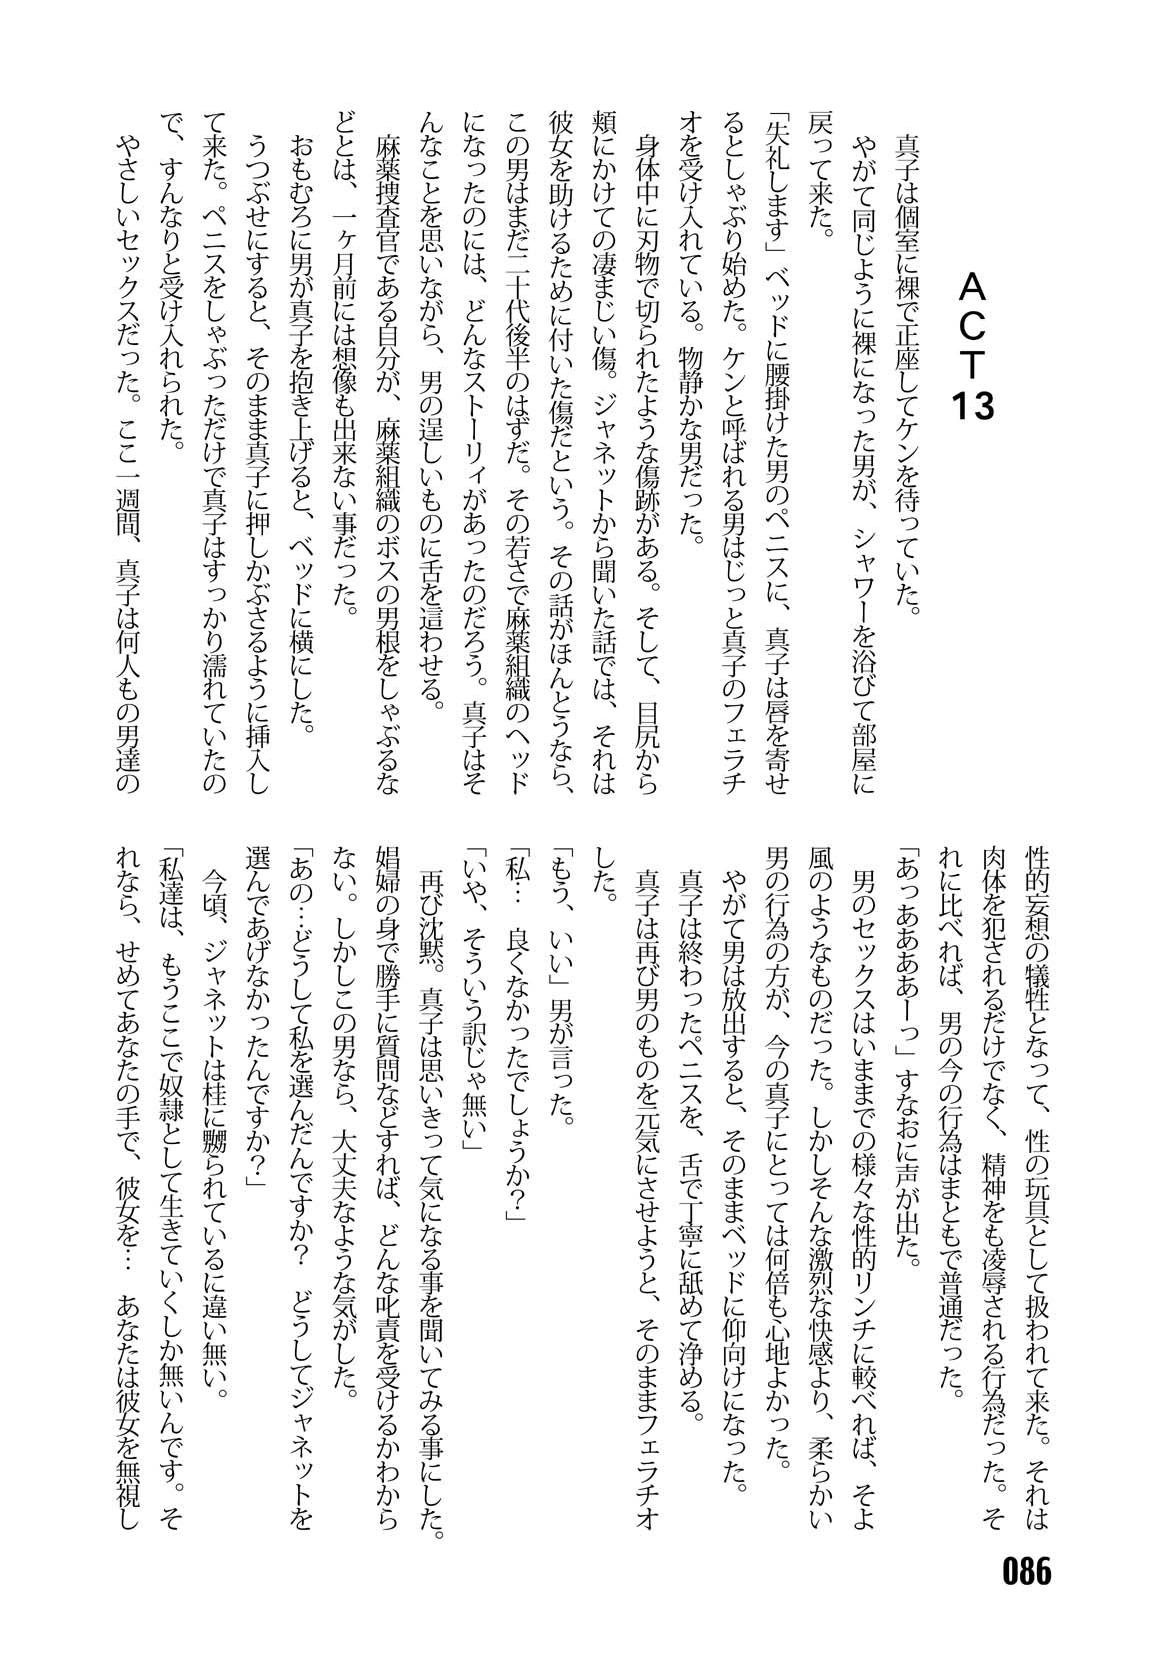 ACT13
真子は個室に裸で正座してケンを待っていた。
やがて同じように裸になった男が、シャワーを浴びて部屋に
戻って来た。
「失礼します」ベッドに腰掛けた男のペニスに、真子は唇を寄せ
るとしゃぶり始めた。ケンと呼ばれる男はじっと真子のフェラチ
オを受け入れている。物静かな男だった。
身体中に刃物で切られたような傷跡がある。そして、目尻から
頬にかけての凄まじい傷。ジャネットから聞いた話では、それは
彼女を助けるために付いた傷だという。その話がほんとうなら、
この男はまだ二十代後半のはずだ。その若さで麻薬組織のヘッド
になったのには、どんなストーリィがあったのだろう。真子はそ
んなことを思いながら、男の逞しいものに舌を這わせる。
麻薬捜査官である自分が、麻薬組織のボスの男根をしゃぶるな
どとは、一ヶ月前には想像も出来ない事だった。
おもむろに男が真子を抱き上げると、ベッドに横にした。
うつぶせにすると、そのまま真子に押しかぶさるように挿入し
て来た。ペニスをしゃぶっただけで真子はすっかり濡れていたの
で、すんなりと受け入れられた。
やさしいセックスだった。ここ一週間、真子は何人もの男達の
性的妄想の犠牲となって、性の玩具として扱われて来た。それは
肉体を犯されるだけでなく、精神をも凌辱される行為だった。そ
れに比べれば、男の今の行為はまともで普通だった。
「あっああああーっ」すなおに声が出た。
男のセックスはいままでの様々な性的リンチに較べれば、そよ
風のようなものだった。しかしそんな激烈な快感より、柔らかい
男の行為の方が、今の真子にとっては何倍も心地よかった。
やがて男は放出すると、そのままベッドに仰向けになった。
真子は終わったペニスを、舌で丁寧に舐めて浄める。
真子は再び男のものを元気にさせようと、そのままフェラチオ
した。
「もう、いい」男が言った。
「私… 良くなかったでしょうか？」
「いや、そういう訳じゃ無い」
再び沈黙。真子は思いきって気になる事を聞いてみる事にした。
娼婦の身で勝手に質問などすれば、どんな叱責を受けるかわから
ない。しかしこの男なら、大丈夫なような気がした。
「あの…どうして私を選んだんですか？ どうしてジャネットを
選んであげなかったんですか？」
今頃、ジャネットは桂に嬲られているに違い無い。
「私達は、もうここで奴隷として生きていくしか無いんです。そ
れなら、せめてあなたの手で、彼女を… あなたは彼女を無視し
086